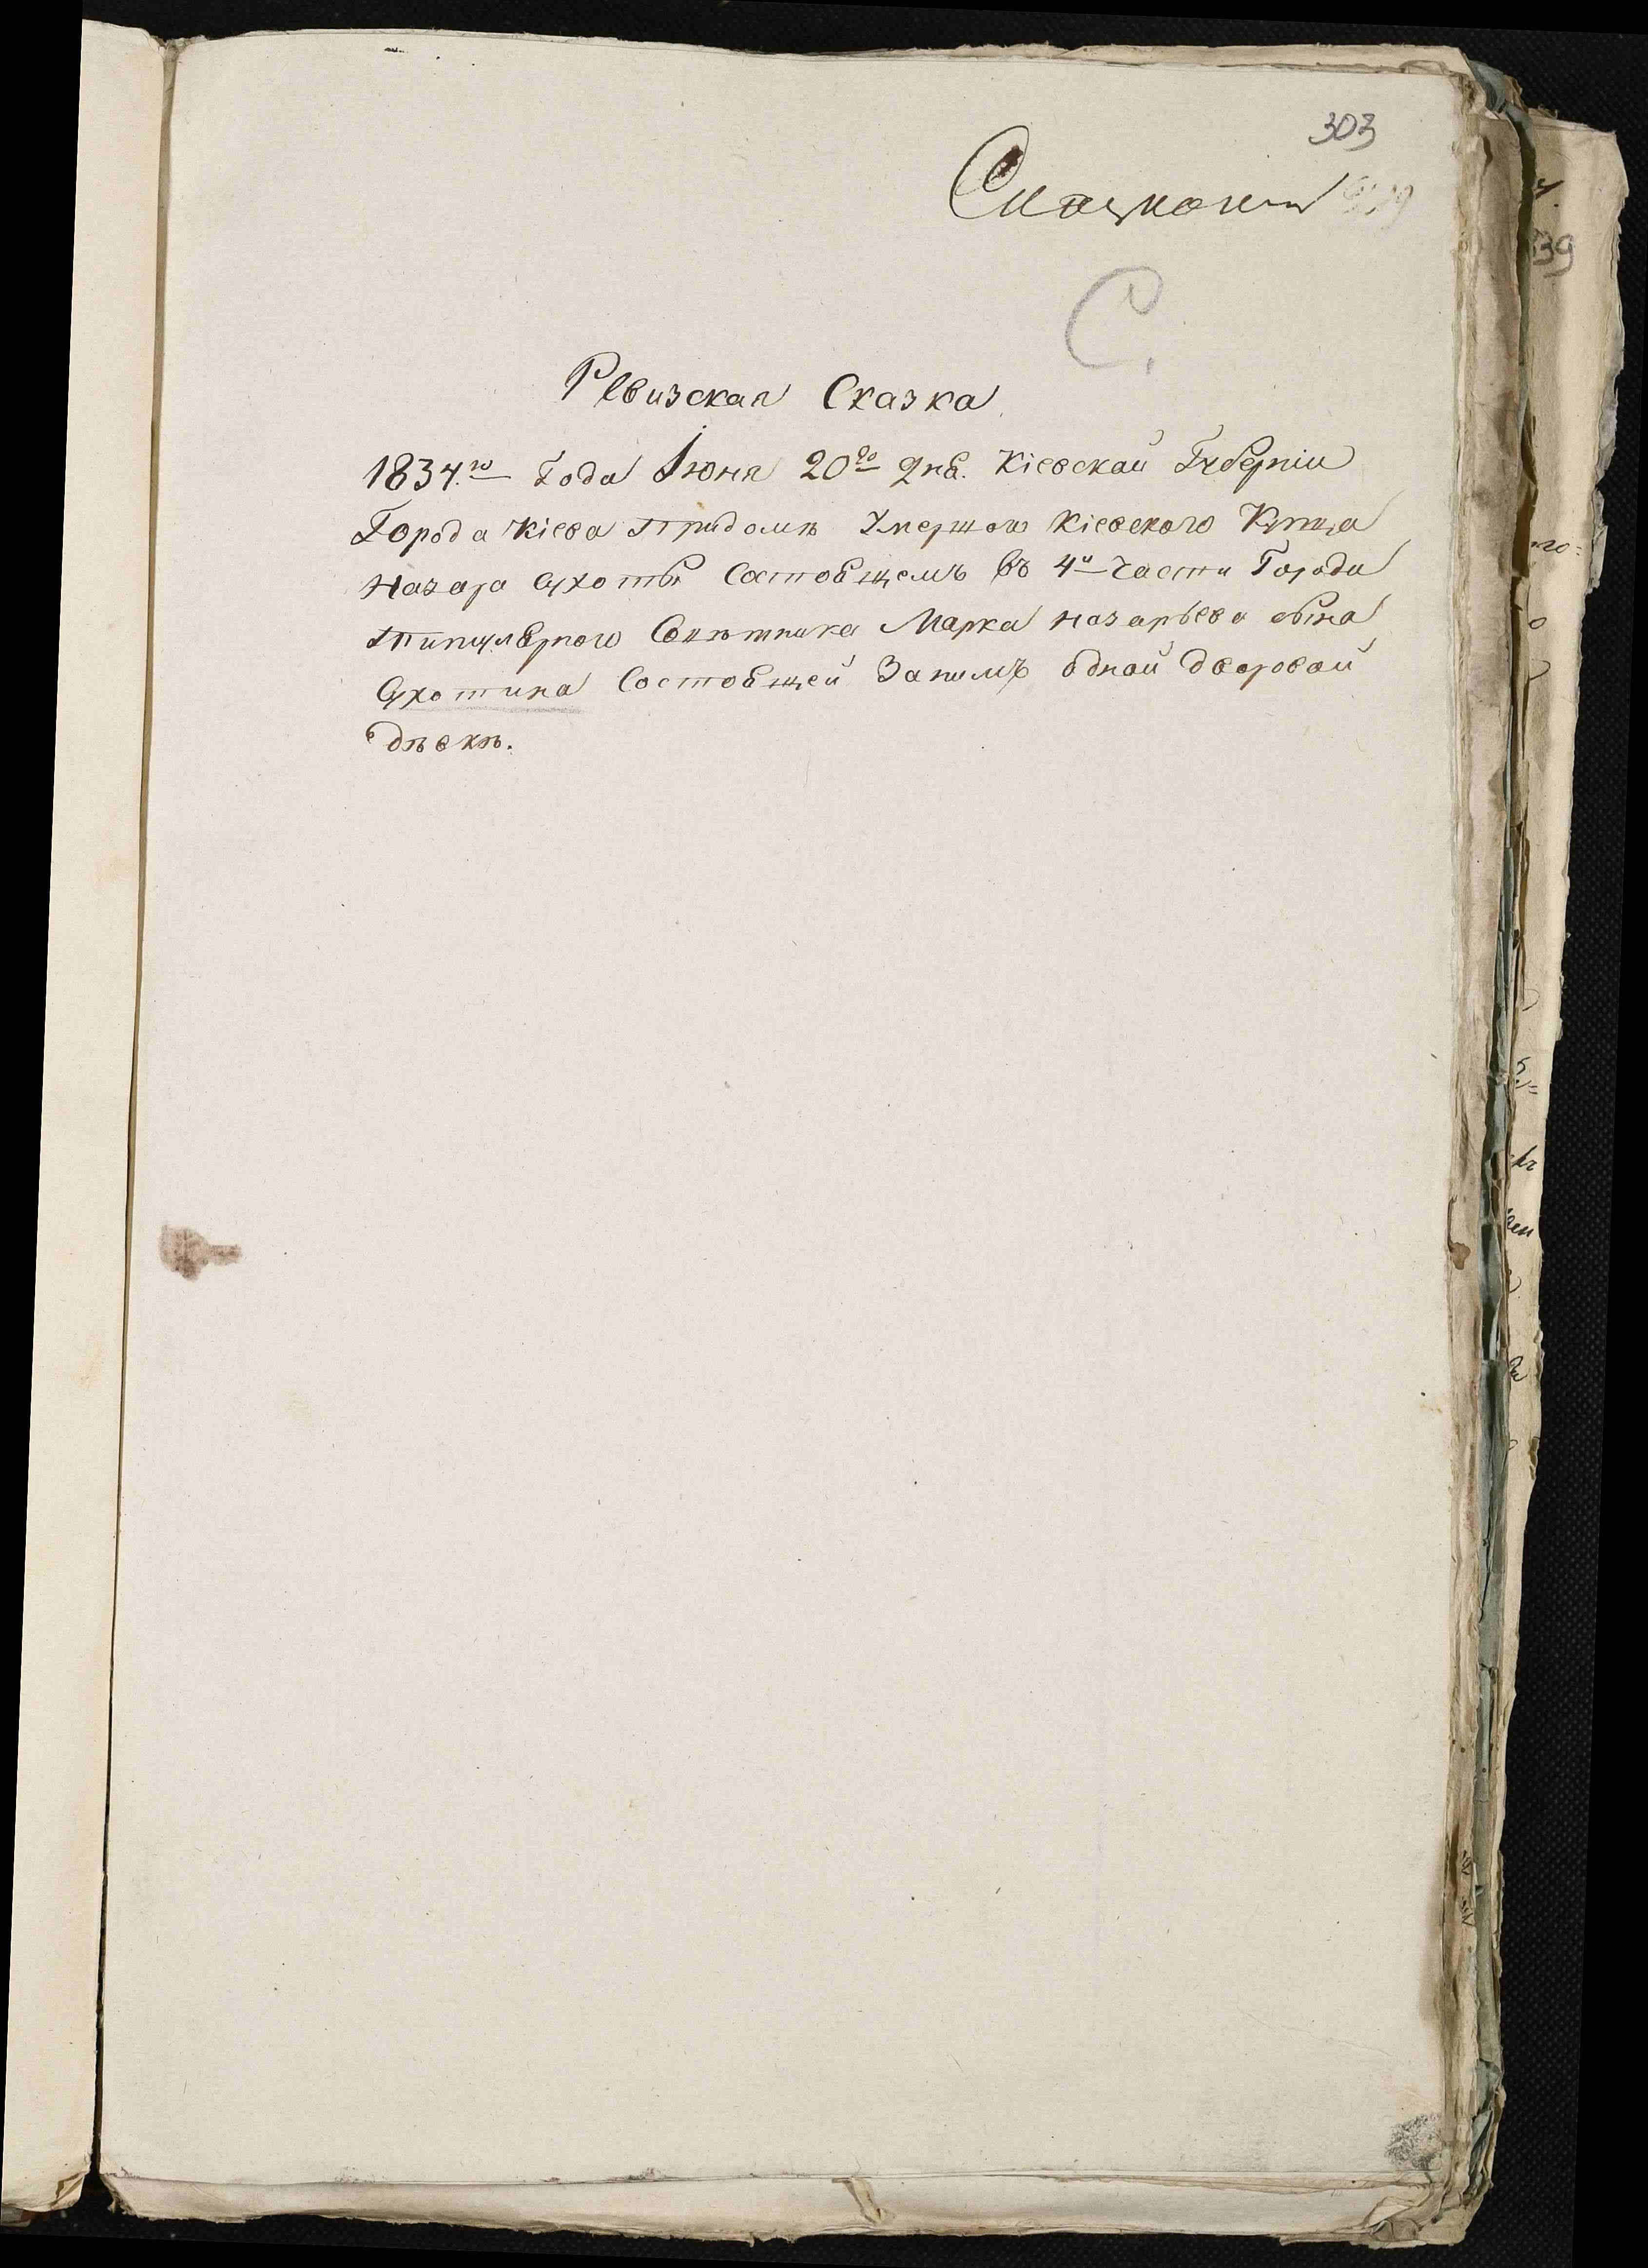 303
С.
Ревизская Сказка
1834.го Года Іюня 20го дня. Кіевской Губерніи
Города Кіева при домѣ Умершого Кіевского Купца
Назара Сухоты Состоящемъ въ 4й части Города
титулярного Совѣтника Марка Назарьева сына
Сухотина Состоящей За нимъ одной дворовой
дѣвкѣ.